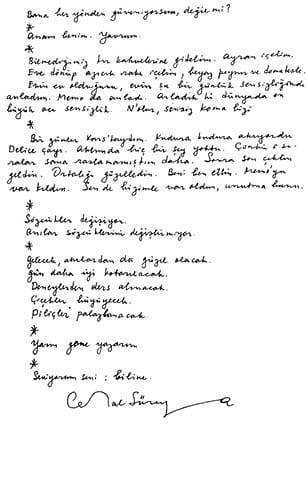 Bana her yönden güveniyorsun, değil mi?
*
Anam benim. Yavrum.
*
Bilmediğimiz kır kahvelerine gidelim. Ayran içelim.
Eve dönüp azıcık rakı içelim, beyaz peynir ve domatesle.
Evin ne olduğunu, evin bu bir günlük sensizliğinde
anladım. Memo da anladı. Anladık ki dünyada en
büyük acı sensizlik. N'olur, sensiz koma bizi
*
Bir günler Kars'taydım. Kudura kudura akıyordu
Delice çayı. Aklımda hiç bir şey yoktu. Çünkü o sı-
ralar sana raslamamıştım daha. Sonra sen çıktın
geldin. Ortalığı güzelledin. Beni ben ettin. Memo'yu
var kıldın. Sen de bizimle var oldun, unutma bunu.
*
Sözcükler değişiyor.
Anılar sözcüklerini değiştirmiyor.
*
Gelecek, anılardan da güzel olacak.
Gün daha iyi kotarılacak.
Deneylerden ders alınacak.
Çiçekler büyüyecek.
Piliçler palazlanacak.
*
Yarın gene yazarım
*
Seviyorum seni; biline.
Cemal Süreya